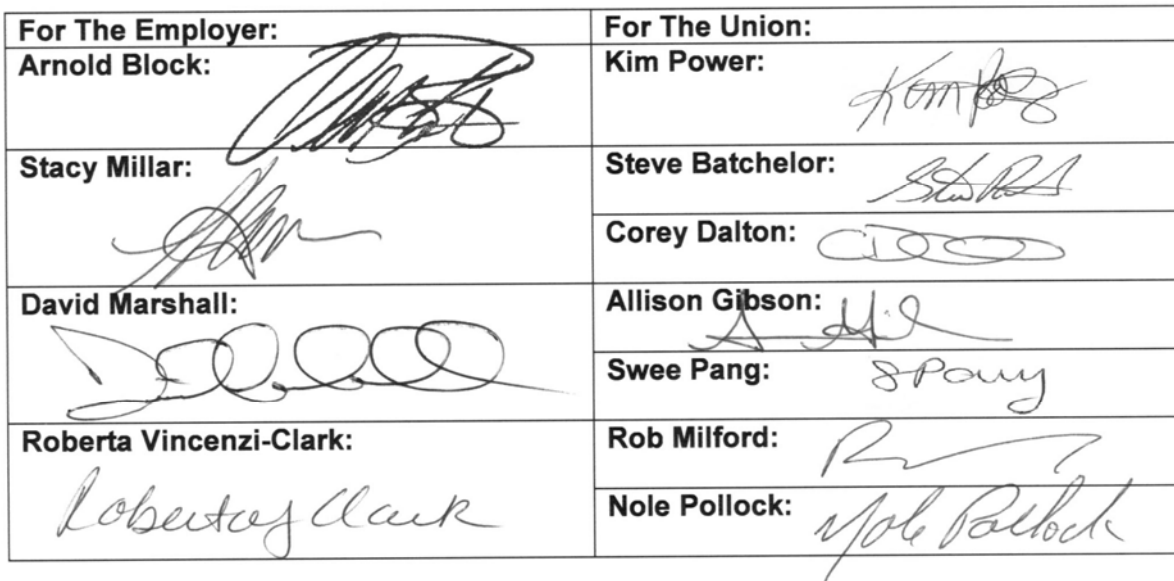 For The Employer:
Arnold Block:
Stacy Millar:
David Marshall:
Roberta Vincenzi-Clark:
Roberta Clark
For The Union:
Kim Power:
Steve Batchelor:
Corey Dalton:
Allison Gibson:
Swee Pang:
SPang
Rob Milford:
Nole Pollock:
Nole Pollock